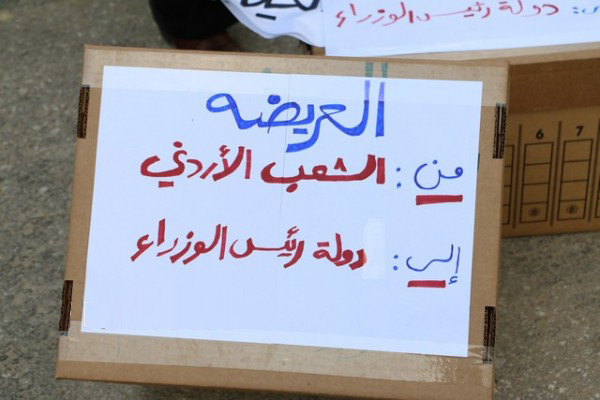 دولة رئيس الوزراء
العريضه
من: الشعب الأردني
إلى: دولة رئيس الوزراء
6 7